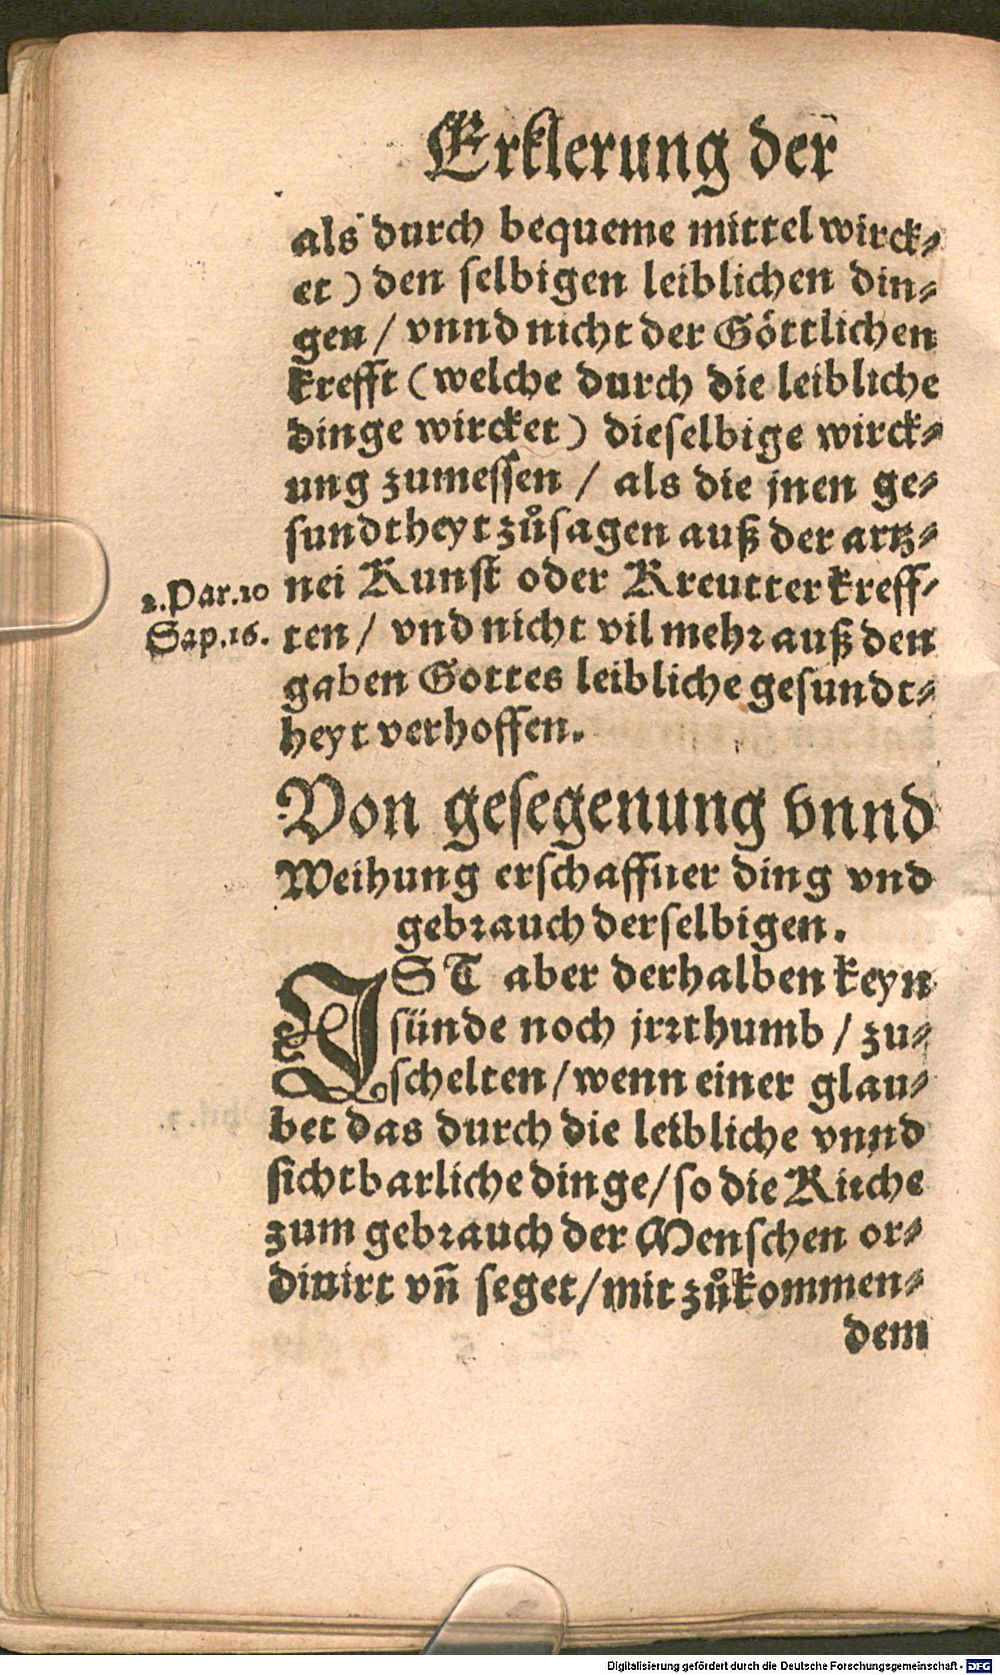 Erklerung der
als durch bequeme mittel wirck⸗
et) den selbigen leiblichen din⸗
gen / vnnd nicht der Göttlichen
krefft (welche durch die leibliche
dinge wircket) dieselbige wirck⸗
ung zumessen / als die jnen ge⸗
sundtheyt zůsagen auß der artz⸗
2.Par.10 nei Kunst oder Kreutter kreff⸗
Sap.16. ten / vnd nicht vil mehr auß den
gaben Gottes leibliche gesundt⸗
heyt verhoffen.
Von gesegenung vnnd
Weihung erschaffner ding vnd
gebrauch derselbigen.
IST aber derhalben keyn
sünde noch jrrthumb / zu⸗
schelten / wenn einer glau⸗
bet das durch die leibliche vnnd
sichtbarliche dinge / so die Kirche
zum gebrauch der Menschen or⸗
dinirt vñ seget / mit zůkommen⸗
dem
Digitalisierung gefördert durch die Deutsche Forschungsgemeinschaft - DFG